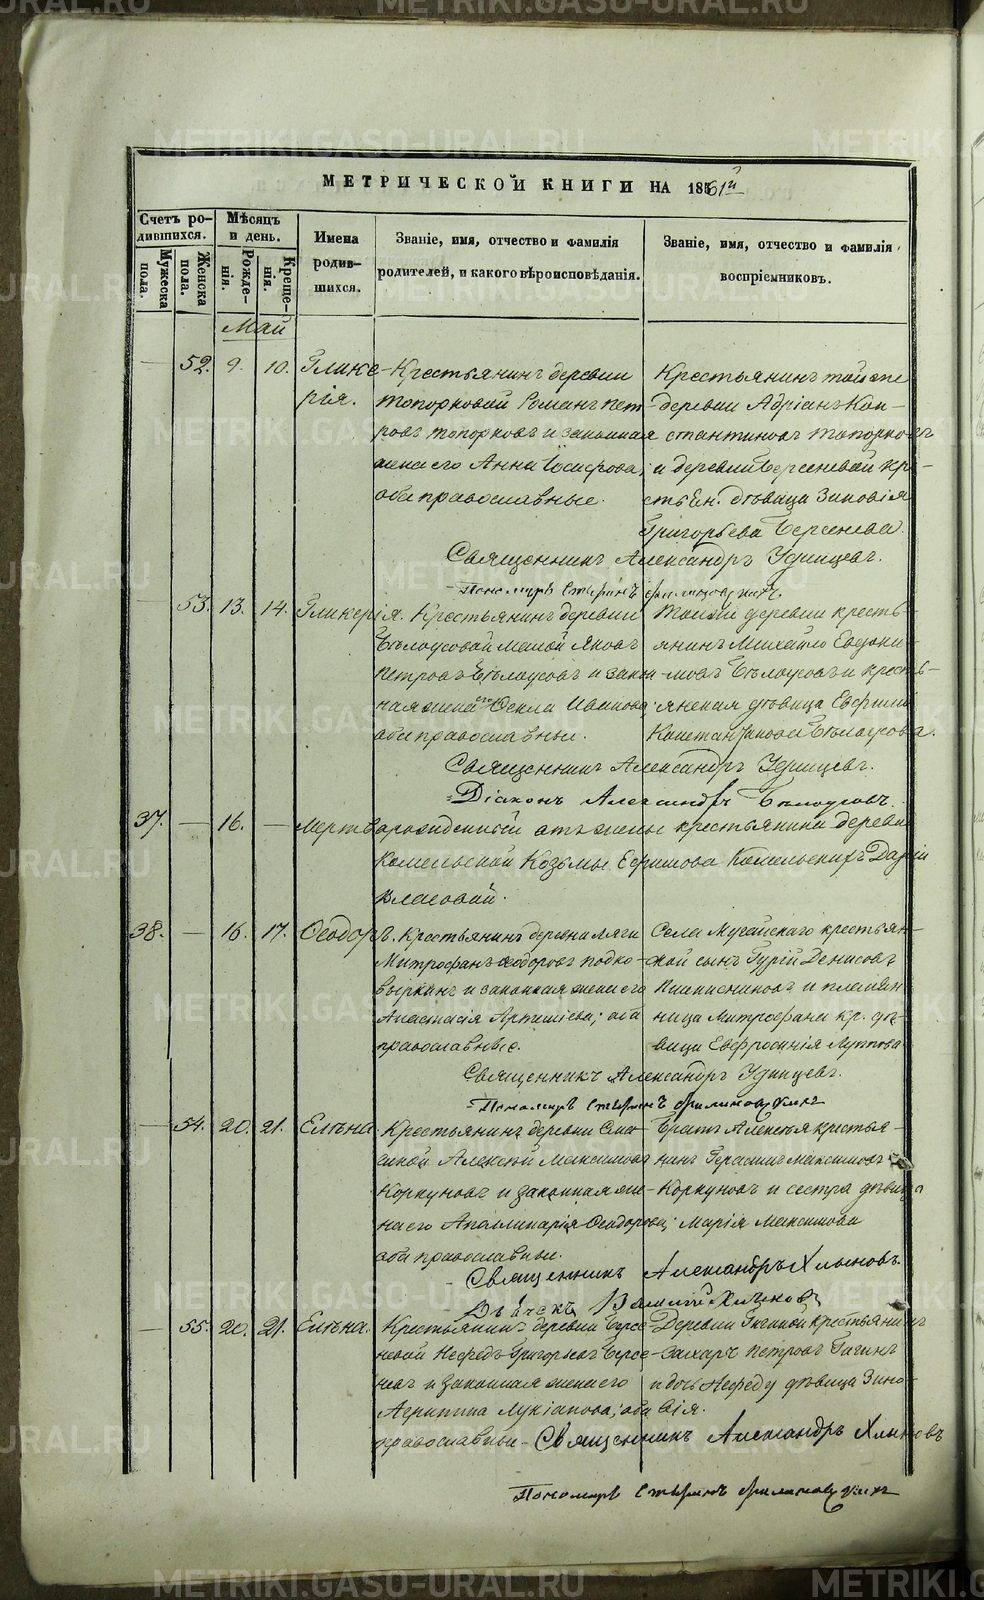 МЕТРИЧЕСКОЙ КНИГИ НА 1861й
Счетъ ро-
дившихся.
Мужеска пола.
Женска пола.
Мѣсяцъ
и день.
Рожде-
нія.
Креще-
нія.
Имена
родив-
шихся.
Званіе, имя, отчество и фамилія
родителей, и какого вѣроисповѣданія.
Званіе, имя, отчество и фамилія
воспріемниковъ.
Май
— 52. 9. 10. Глике-
рія.
Крестьянинъ деревни
Топорковой Романъ Пет-
ровъ Топорковъ и законная
жена его Анна Іосифова,
оба православные.
Крестьянинъ той же
деревни Адріанъ Кон-
стантиновъ Топорковъ
и деревни Берсеневой кре-
стьян. дѣвица Зиновія
Григорьева Берсенева
Священникъ Александръ Удинцевъ.
Пономарь
— 53. 13. 14. Гликерія.
Крестьянинъ деревни
Бѣлоусовой Малой Яковъ
Петровъ Бѣлоусовъ и закон-
ная жена его Ѳекла Иванова
оба православные.
Той же деревни кресть-
янинъ Михайло Евдоки-
мовъ Бѣлоусовъ и кресть-
янская дѣвица
Константинова Бѣлоусова.
Священникъ Александръ Удинцевъ.
Діаконъ Александръ Бѣлоусовъ.
37. — 16. — Мертворожденный отъ жены крестьянина деревни
Комельской Козьмы Ефимова Комельскихъ Дарьи
Власовой.
38. — 16. 17. Ѳеодоръ.
Крестьянинъ деревни Ляги
Митрофанъ Ѳеодоровъ Подко-
выркинъ и законная жена его
Анастасія Артемьева; оба
православные.
Села Мугайскаго крестьян-
ской сынъ Гурій Денисовъ
и племян
ница Митрофана кр. дѣ-
вица Евфросинія
Священникъ Александръ Удинцевъ.
Пономарь
— 54. 20. 21. Елѣна
Крестьянинъ деревни
Алексѣй Максимовъ
Коркуновъ и законная же-
на его Аполлинарія Ѳеодорова;
оба православные.
Братъ Алексѣя крестья-
нинъ Герасимъ Максимовъ
Коркуновъ и сестра дѣвица
Марія Максимова
Священникъ Александръ Хлыновъ.
Дьячекъ Василій Хлыновъ
— 55. 20. 21. Елѣна.
Крестьянинъ деревни Берсе-
невой Нефедъ Григорьевъ Берсе-
невъ и законная жена его
Агрипина Лукіанова; оба
православные
Деревни крестьянинъ
Захаръ Петровъ
и дочь Нефеда дѣвица Зино-
вія.
Священникъ Александръ Хлыновъ
Пономарь
METRIKI.GASO-URAL.RU